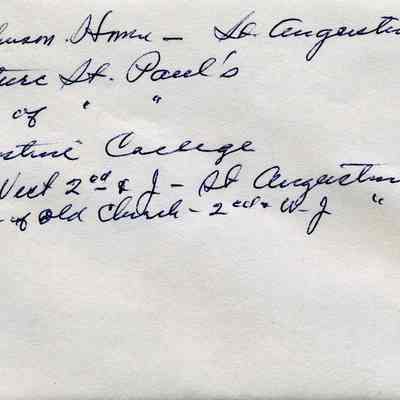 Home - St. Augustin
St. Paul's
of " "
College
West 2nd & J - St Augustin
of Old Church - 2nd & W-J "